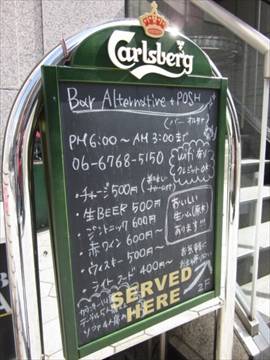 Carlsberg
Bar Alternative + POSH
(バー オルタナ)
PM6:00〜AM3:00まで
06-6768-5150
wifi あり
クレジットOK
・チャージ500円
・生BEER 500円
・ジントニック 600円
・赤ワイン 600円
・ウィスキー 500円〜
・ライトフード 400円〜
おいしい
生ハム(原木)
あります!!!
お気軽に
SERVED
HERE
2F
カウンター